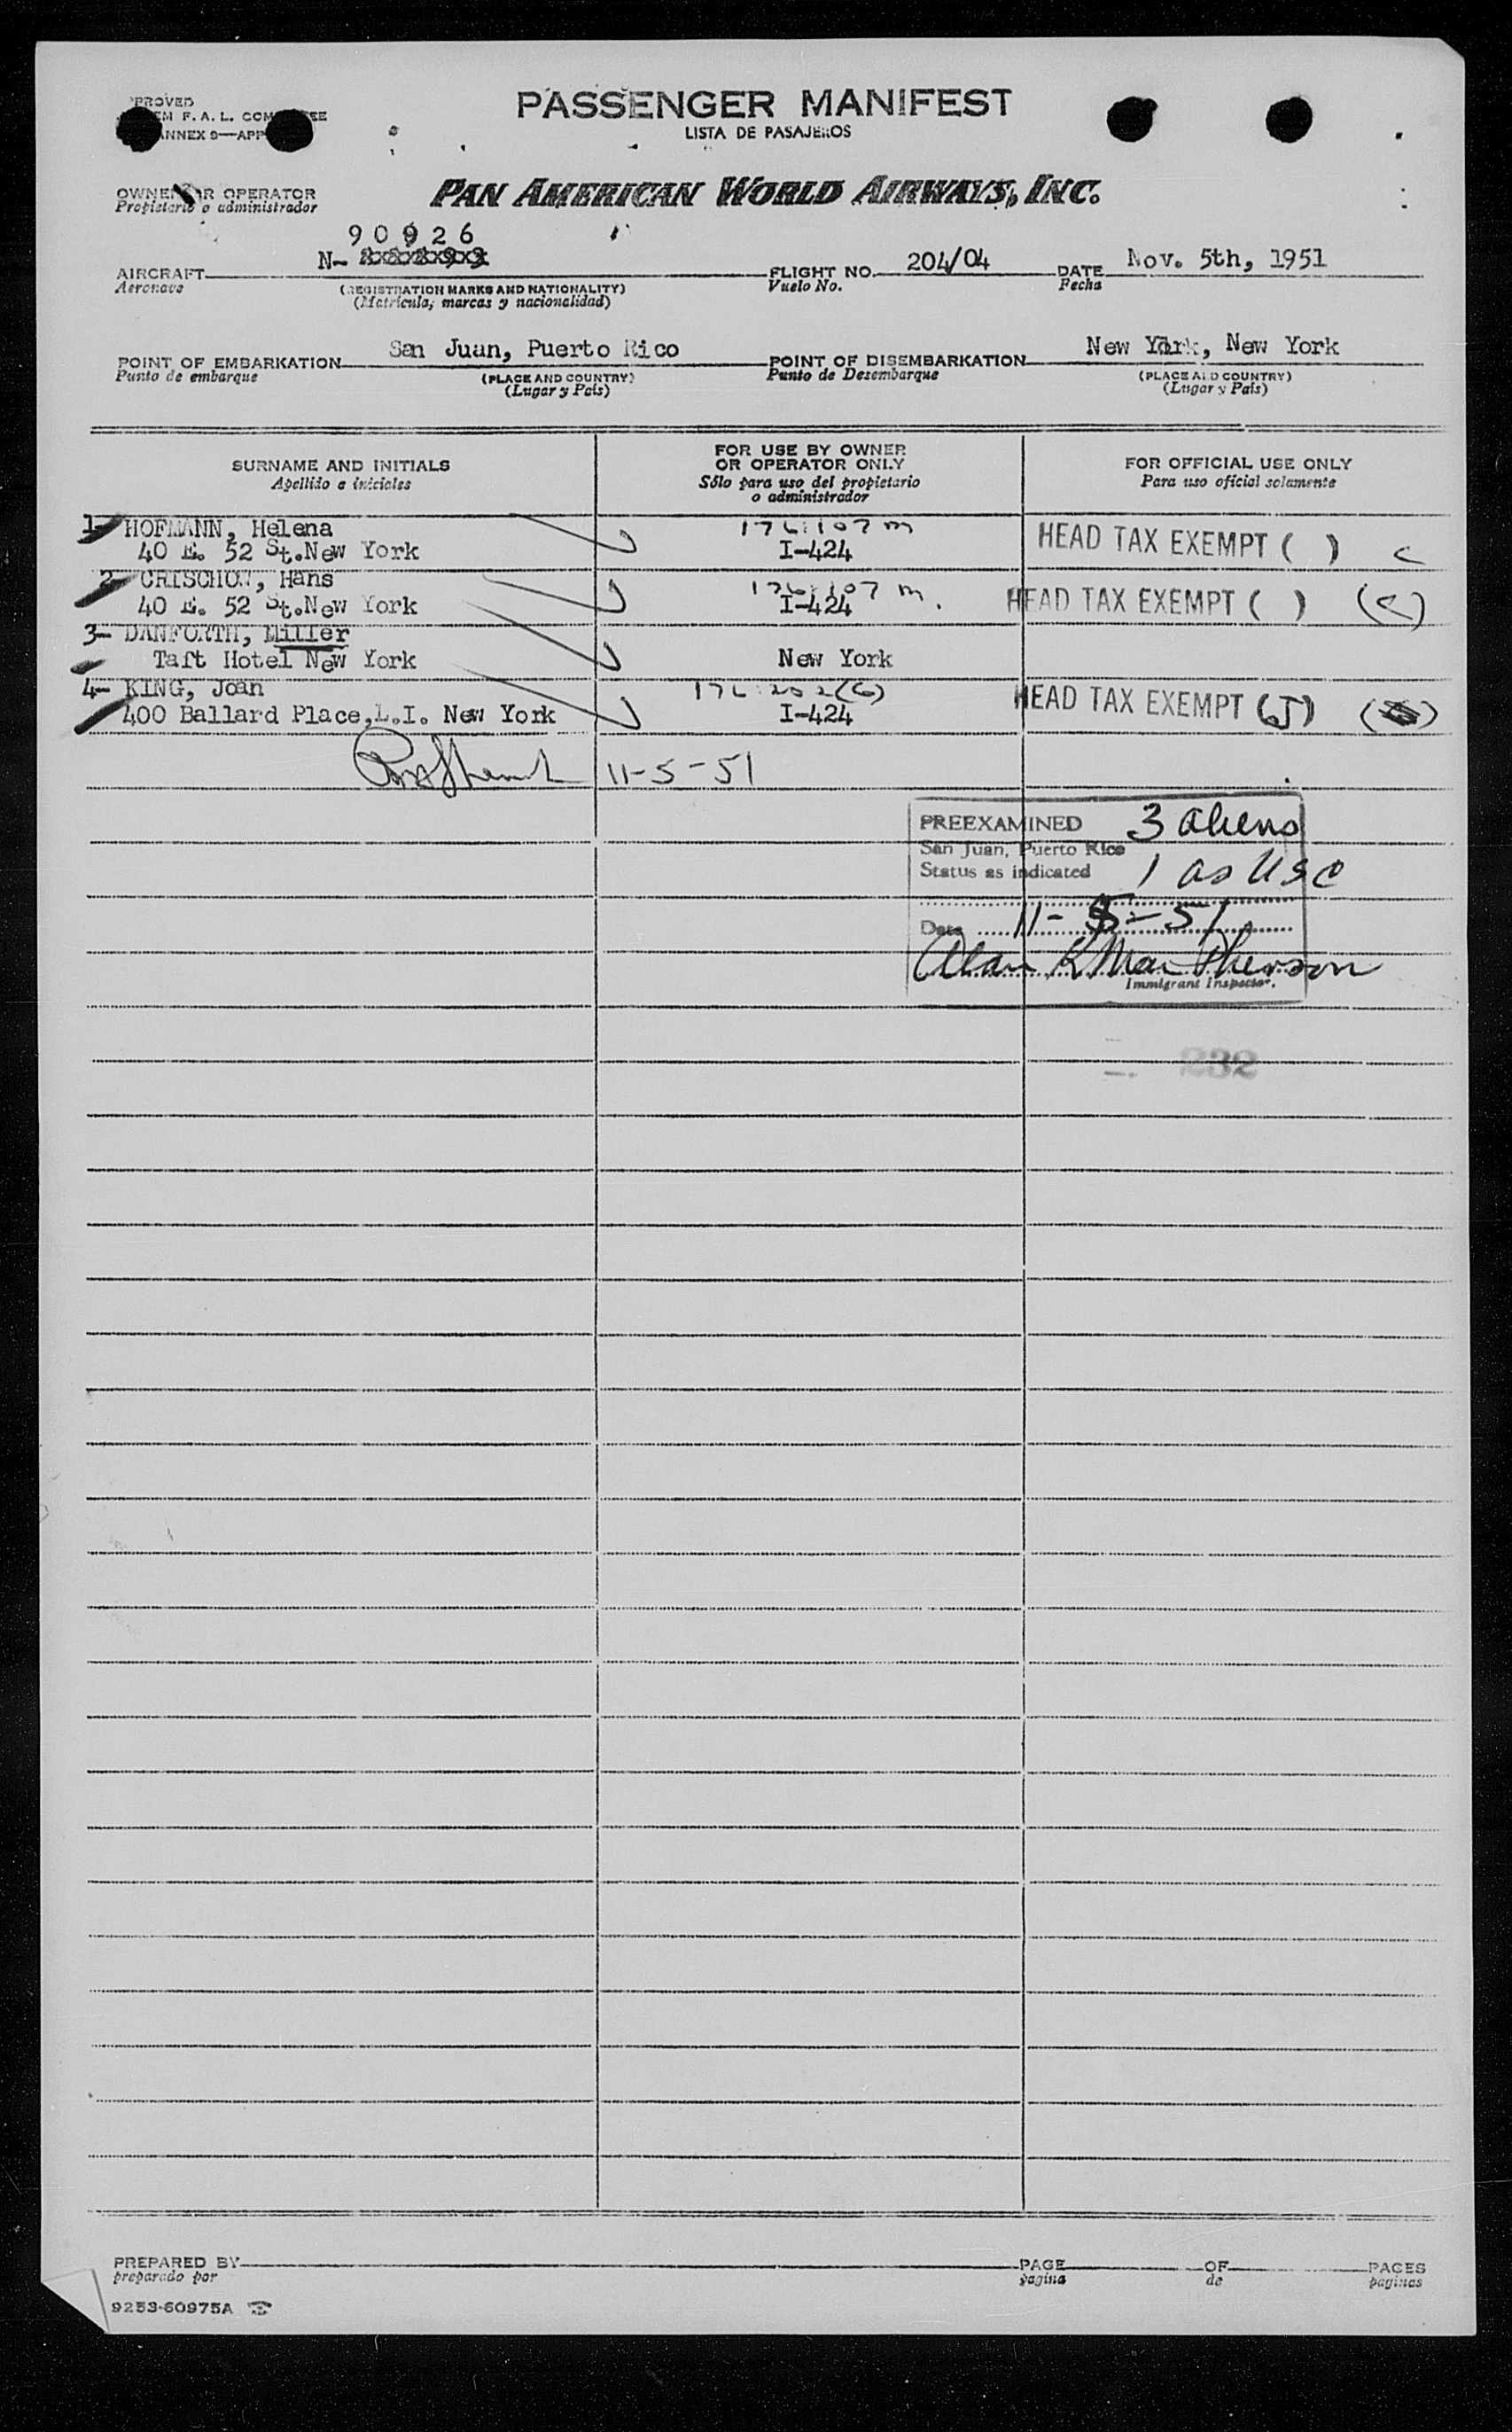 PROVED
EM F. A. L. COM EE
ANNEX 9—APP
PASSENGER MANIFEST
LISTA DE PASAJEROS
OWNER OR OPERATOR
Propietario o administrador
PAN AMERICAN WORLD AIRWAYS, INC.
90926
N-
AIRCRAFT
Aeronave
(REGISTRATION MARKS AND NATIONALITY)
(Matrícula, marcas y nacionalidad)
FLIGHT NO. 204/04
Vuelo No.
DATE Nov. 5th, 1951
Fecha
POINT OF EMBARKATION San Juan, Puerto Rico
Punto de embarque
(PLACE AND COUNTRY)
(Lugar y País)
POINT OF DISEMBARKATION New York, New York
Punto de Desembarque
(PLACE AND COUNTRY)
(Lugar y País)
SURNAME AND INITIALS
Apellido e iniciales
FOR USE BY OWNER
OR OPERATOR ONLY
Sólo para uso del propietario
o administrador
FOR OFFICIAL USE ONLY
Para uso oficial solamente
1- HOFMANN, Helena
40 E. 52 St. New York
I-424
HEAD TAX EXEMPT ( )
2- CRISCHOW, Hans
40 E. 52 St. New York
I-424
HEAD TAX EXEMPT ( )
3- DANFORTH, Miller
Taft Hotel New York
New York
4- KING, Joan
400 Ballard Place, L.I. New York
I-424
HEAD TAX EXEMPT (J)
11-5-51
PREEXAMINED 3 aliens
San Juan, Puerto Rico
Status as indicated 1 as USC
Date 11-5-51
Alan K MacPherson
Immigrant Inspector.
232
PREPARED BY
preparado por
PAGE OF PAGES
pagina de paginas
9253-60975A